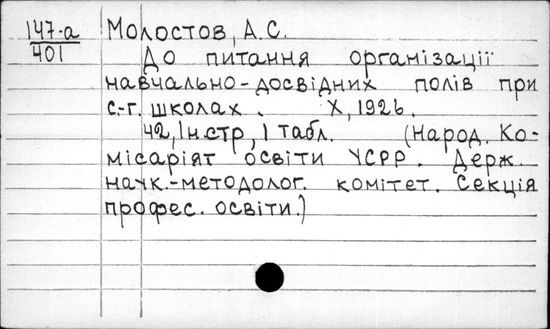 147-а Молостов, А.С.
401 До питання організації
навчально-досвідних полів при
с.-г. школах. Х, 1926.
42, Ін.стр, 1 табл. (Народ. Ко-
місаріят освіти УСРР. Держ.
наук.-методолог. комітет. Секція
профес. освіти.)